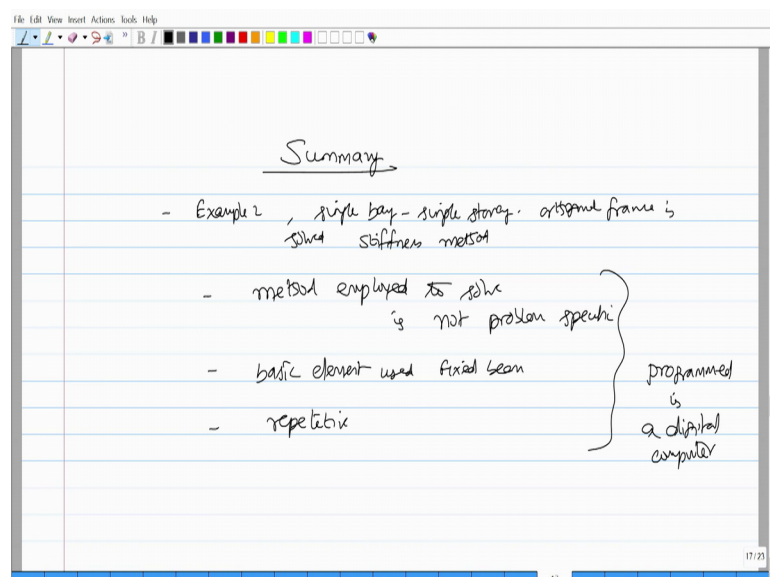 File Edit View Insert Actions Tools Help
B I
Summary
- Example 2, single bay - single storey. orthogonal frame is
solved stiffness method
- method employed to solve
is not problem specific
- basic element used fixed beam
- repetetive
programmed
is
a digital
computer
17/23